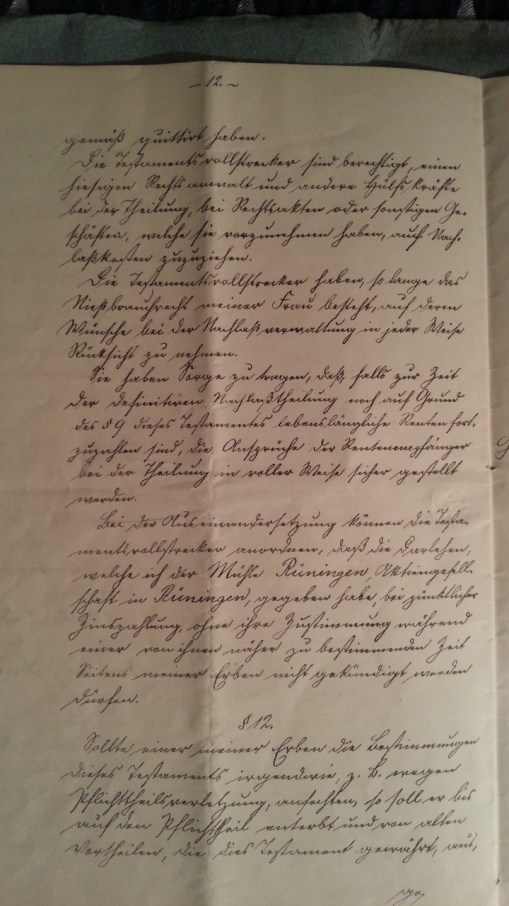 - 12. -
gemäß quittirt haben.
Die Testamentsvollstrecker sind berechtigt, einen
hiesigen Rechtsanwalt und andere Hülfskräfte
bei der Theilung, bei Rechtsakten oder sonstigen Ge-
schäften, welche sie vorzunehmen haben, auf Nach-
laßkosten zuzuziehen.
Die Testamentsvollstrecker haben, so lange das
Nießbrauchrecht meiner Frau besteht, auf deren
Wünsche bei der Nachlaßverwaltung in jeder Weise
Rücksicht zu nehmen.
Sie haben Sorge zu tragen, daß, falls zur Zeit
der definitiven Nachlaßtheilung noch auf Grund
des § 9 dieses Testamentes lebenslängliche Renten fort-
zuzahlen sind, die Ansprüche der Rentenempfänger
bei der Theilung in voller Weise sicher gestellt
werden.
Bei der Auseinandersetzung können die Testa-
mentsvollstrecker anordnen, daß die Darlehen,
welche ich der Mühle Rüningen, Aktiengesell-
schaft in Rüningen, gegeben habe, bei pünktlicher
Zinszahlung, ohne ihre Zustimmung während
einer von ihnen näher zu bestimmenden Zeit
Seitens meiner Erben nicht gekündigt werden
dürfen.
§ 12.
Sollte einer meiner Erben die Bestimmungen
dieses Testaments irgendwie, z. B. wegen
Pflichttheilsverletzung, anfechten, so soll er bis
auf den Pflichttheil enterbt und von allen
Vortheilen, die dies Testament gewährt, aus-